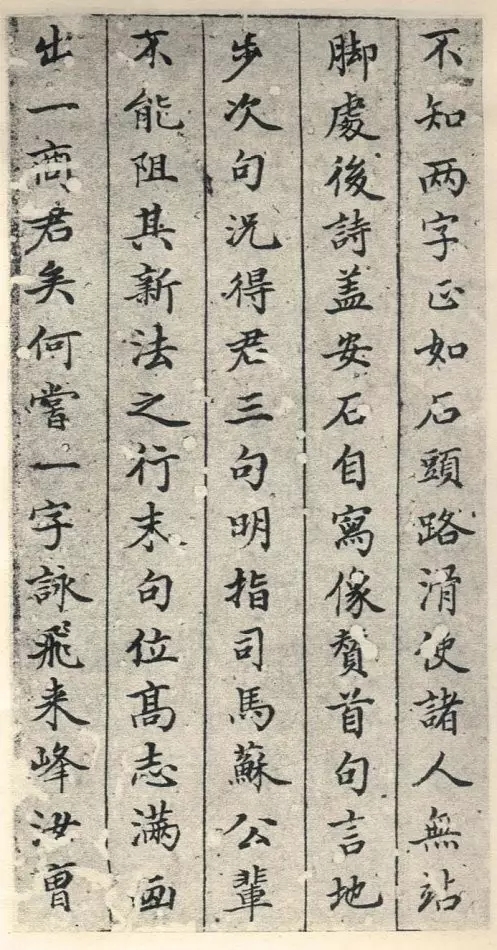 不知两字正如石頭路滑使諸人無站
脚處後詩盖安石自寫像賛首句言地
步次句況得君三句明指司馬蘇公輩
不能阻其新法之行末句位髙志满画
出一商君矣何嘗一字詠飛来峰汝曹